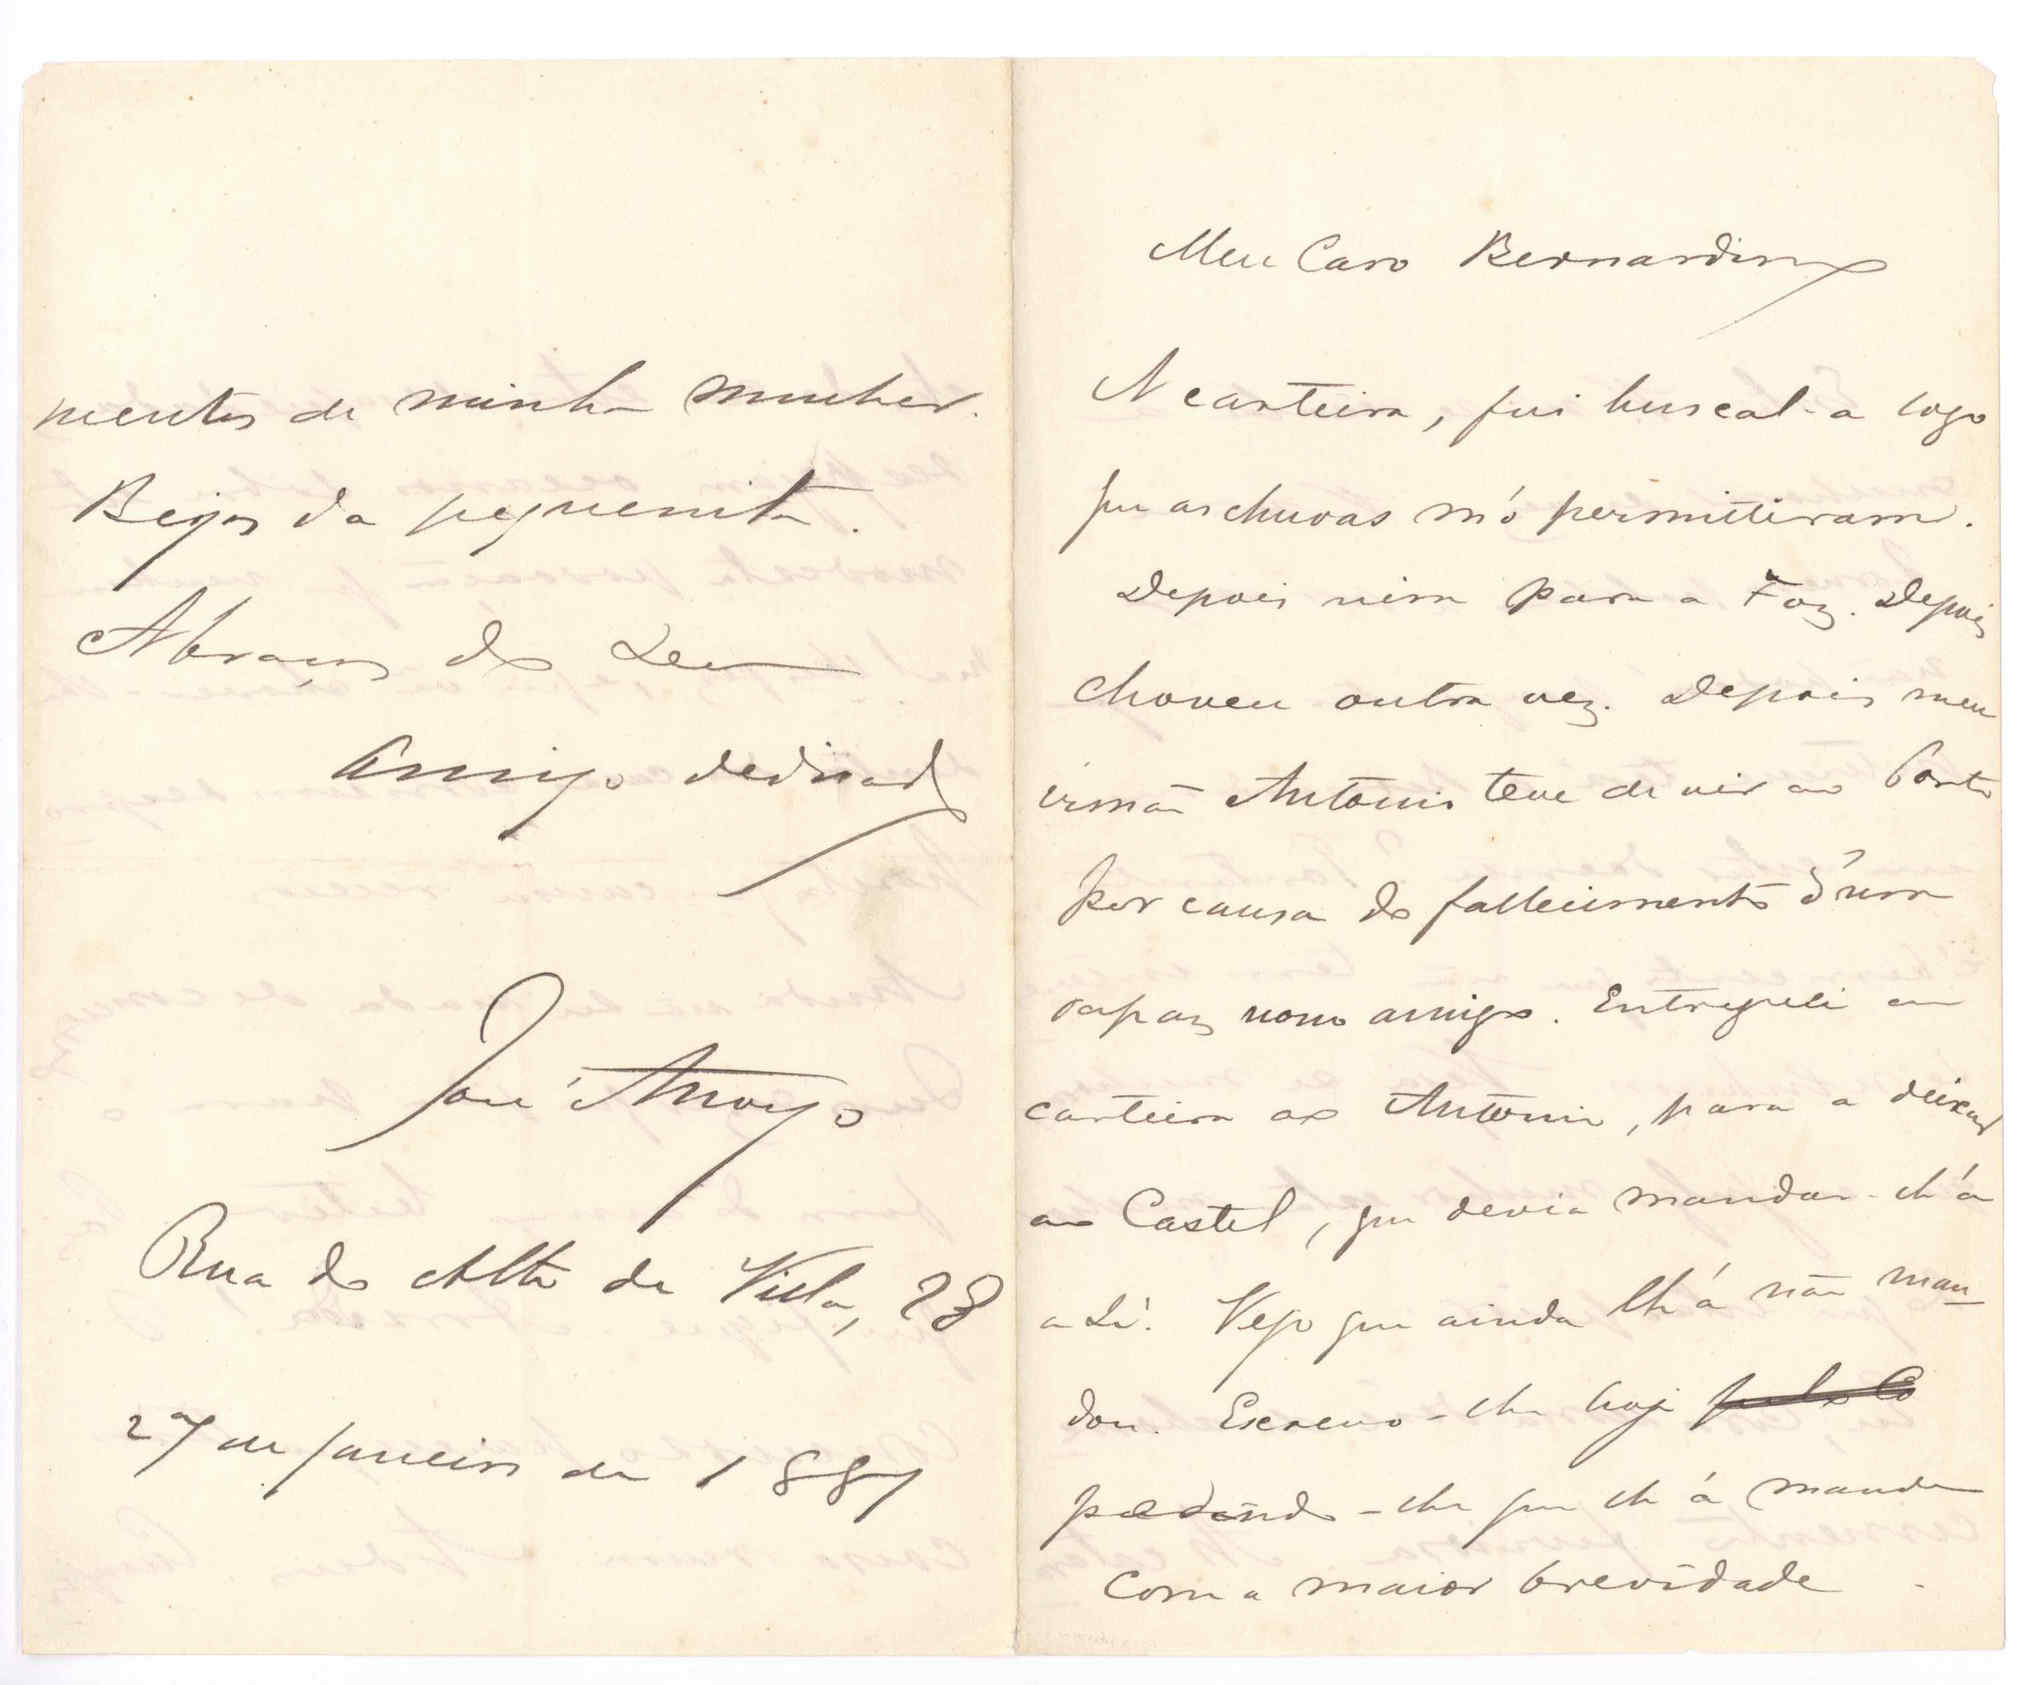 Meu Caro Bernardino
A carteira, fui buscal-a logo
que as chuvas m'o permittiram.
Depois vim para a Foz. Depois
choveu outra vez. Depois meu
irmão Antonio teve de vir ao Porto
por causa do fallecimento d'um
rapaz nosso amigo. Entreguei a
carteira ao Antonio, para a deixar
ao Castel, que devia mandar-lh'a
a Si. Vejo que ainda lh'a não man-
dou. Escrevo-lhe hoje
pedindo-lhe que lh'a mande
com a maior brevidade.
mentos de minha mulher.
Beijos da pequenita.
Abraços do Seu
amigo dedicado
José Arroyo
Rua do Alto de Villa, 28
27 de Janeiro de 1887